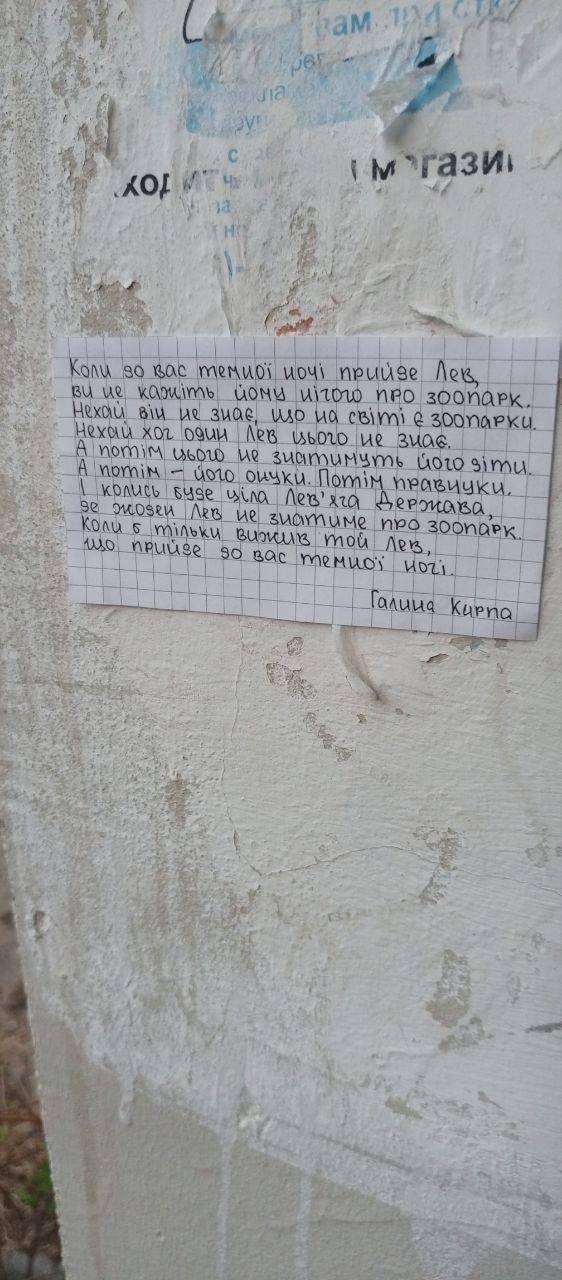 рам
с
ход
магазин
Коли до вас темної ночі прийде Лев,
ви не кажіть йому нічого про зоопарк.
Нехай він не знає, що на світі є зоопарки.
Нехай хоч один Лев цього не знає.
А потім цього не знатимуть його діти.
А потім – його онуки. Потім правнуки.
І колись буде ціла Лев'яча Держава,
де жоден Лев не знатиме про зоопарк.
Коли б тільки вижив той Лев,
що прийде до вас темної ночі.
Галина Кирпа